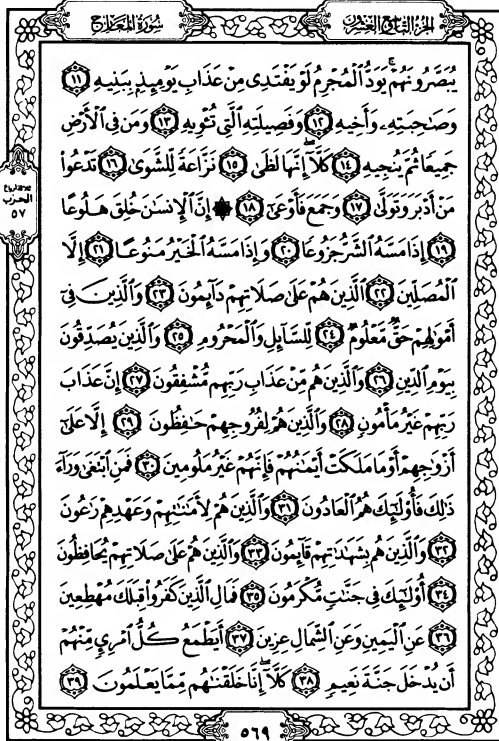 الجزء التاسع والعشرون
سورة المعارج
يُبَصَّرُونَهُمْ يَوَدُّ ٱلْمُجْرِمُ لَوْ يَفْتَدِى مِنْ عَذَابِ يَوْمِئِذٍۭ بِبَنِيهِ ١١
وَصَٰحِبَتِهِۦ وَأَخِيهِ ١٢ وَفَصِيلَتِهِ ٱلَّتِى تُـْٔوِيهِ ١٣ وَمَن فِى ٱلْأَرْضِ
جَمِيعًا ثُمَّ يُنجِيهِ ١٤ كَلَّآ إِنَّهَا لَظَىٰ ١٥ نَزَّاعَةً لِّلشَّوَىٰ ١٦ تَدْعُوا۟
مَنْ أَدْبَرَ وَتَوَلَّىٰ ١٧ وَجَمَعَ فَأَوْعَىٰٓ ١٨ ۞ إِنَّ ٱلْإِنسَٰنَ خُلِقَ هَلُوعًا
١٩ إِذَا مَسَّهُ ٱلشَّرُّ جَزُوعًا ٢٠ وَإِذَا مَسَّهُ ٱلْخَيْرُ مَنُوعًا ٢١ إِلَّا
ٱلْمُصَلِّينَ ٢٢ ٱلَّذِينَ هُمْ عَلَىٰ صَلَاتِهِمْ دَآئِمُونَ ٢٣ وَٱلَّذِينَ فِىٓ
أَمْوَٰلِهِمْ حَقٌّ مَّعْلُومٌ ٢٤ لِّلسَّآئِلِ وَٱلْمَحْرُومِ ٢٥ وَٱلَّذِينَ يُصَدِّقُونَ
بِيَوْمِ ٱلدِّينِ ٢٦ وَٱلَّذِينَ هُم مِّنْ عَذَابِ رَبِّهِم مُّشْفِقُونَ ٢٧ إِنَّ عَذَابَ
رَبِّهِمْ غَيْرُ مَأْمُونٍ ٢٨ وَٱلَّذِينَ هُمْ لِفُرُوجِهِمْ حَٰفِظُونَ ٢٩ إِلَّا عَلَىٰٓ
أَزْوَٰجِهِمْ أَوْ مَا مَلَكَتْ أَيْمَٰنُهُمْ فَإِنَّهُمْ غَيْرُ مَلُومِينَ ٣٠ فَمَنِ ٱبْتَغَىٰ وَرَآءَ
ذَٰلِكَ فَأُو۟لَٰٓئِكَ هُمُ ٱلْعَادُونَ ٣١ وَٱلَّذِينَ هُمْ لِأَمَٰنَٰتِهِمْ وَعَهْدِهِمْ رَٰعُونَ
٣٢ وَٱلَّذِينَ هُم بِشَهَٰدَٰتِهِمْ قَآئِمُونَ ٣٣ وَٱلَّذِينَ هُمْ عَلَىٰ صَلَاتِهِمْ يُحَافِظُونَ
٣٤ أُو۟لَٰٓئِكَ فِى جَنَّٰتٍ مُّكْرَمُونَ ٣٥ فَمَالِ ٱلَّذِينَ كَفَرُوا۟ قِبَلَكَ مُهْطِعِينَ
٣٦ عَنِ ٱلْيَمِينِ وَعَنِ ٱلشِّمَالِ عِزِينَ ٣٧ أَيَطْمَعُ كُلُّ ٱمْرِئٍ مِّنْهُمْ
أَن يُدْخَلَ جَنَّةَ نَعِيمٍ ٣٨ كَلَّآ إِنَّا خَلَقْنَٰهُم مِّمَّا يَعْلَمُونَ ٣٩
الحزب
٥٧
٥٦٩